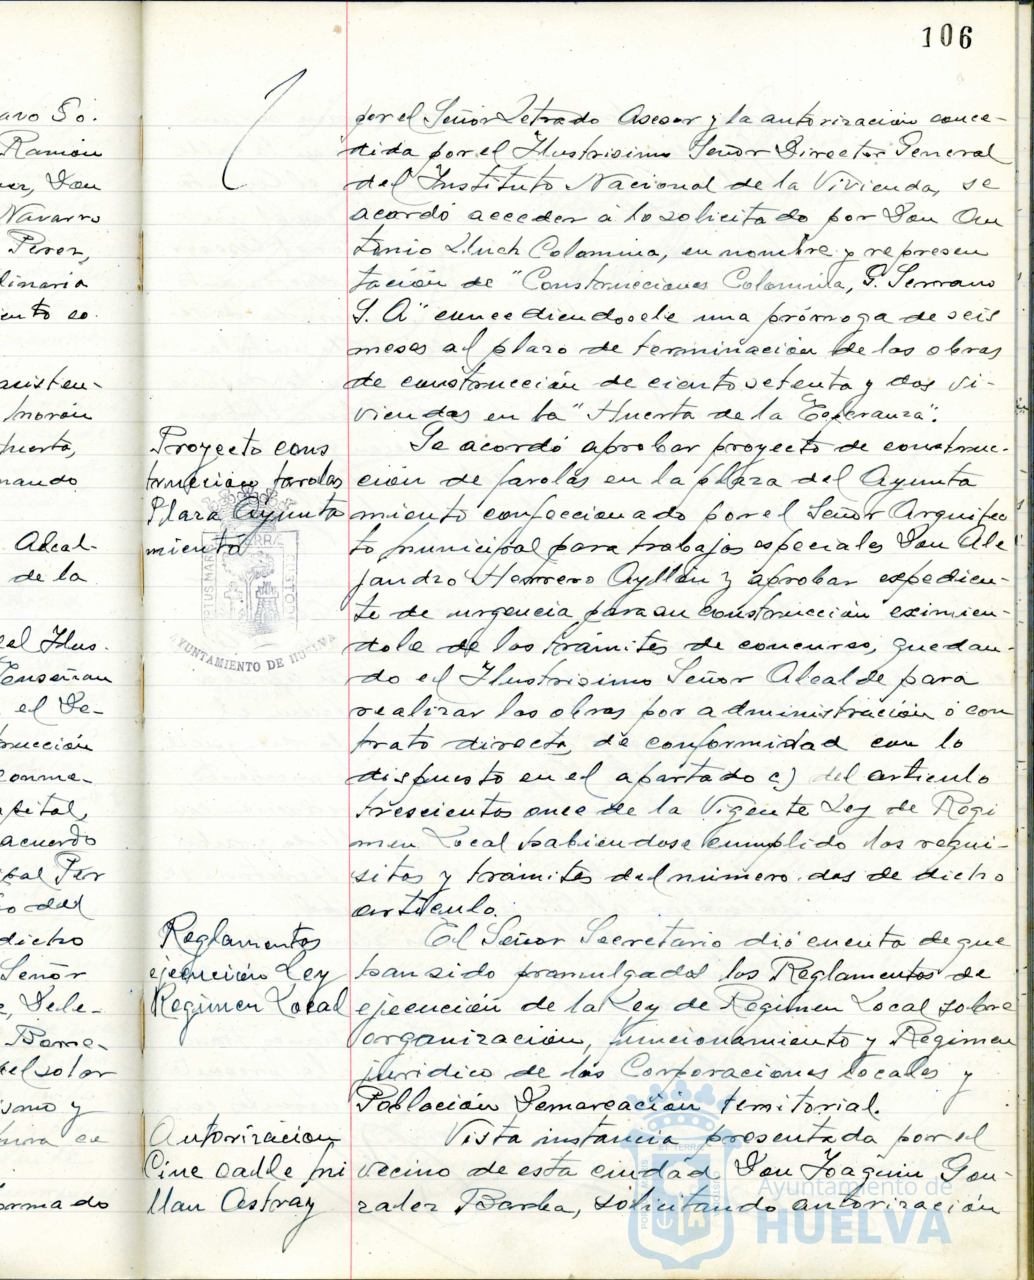 106
por el Señor Letrado Asesor y la autorización conce-
dida por el Ilustrisimo Señor Director General
del Instituto Nacional de la Vivienda, se
acordó acceder a lo solicitado por Don An
tonio Lluch Colomina, en nombre y represen
tación de "Construcciones Colomina, G. Serrano
S. A" concediendosele una prórroga de seis
meses al plazo de terminación de las obras
de construcción de ciento setenta y dos vi-
viendas en la "Huerta de la Esperanza".
Proyecto cons
trucción farolas
Plaza Ayunta
miento
Se acordó aprobar proyecto de construc-
ción de farolas en la plaza del Ayunta
miento confeccionado por el Señor Arquitec
to municipal para trabajos especiales Don Ale
jandro Herrero Ayllón y aprobar expedien-
te de urgencia para su construcción eximien-
dola de los trámites de concurso, quedan-
do el Ilustrisimo Señor Alcalde para
realizar las obras por administración ó con
trato directo, de conformidad con lo
dispuesto en el apartado c) del articulo
trescientos once de la Vigente Ley de Regi
men Local habiendose cumplido los requi-
sitos y trámites del número dos de dicho
articulo.
Reglamentos
ejecución Ley
Regimen Local
El Señor Secretario dió cuenta de que
han sido promulgados los Reglamentos de
ejecución de la Ley de Regimen Local sobre
organización, funcionamiento y Regimen
juridico de las Corporaciones locales y
Población Demarcación territorial.
Autorización
Cine calle Mi
llan Astray
Vista instancia presentada por el
vecino de esta ciudad Don Joaquin Gon-
zalez Barba, solicitando autorización
avo Go.
Ramón
Don
Navarro
Perez,
dinaria
ento co.
asisten-
morón
puerta,
nando
Alcal-
de la
el Ilus.
Enseñan
el De-
trucción
conme-
apital,
acuerdo
ipal Per
o del
dicho
Señor
e, Dele-
Barre-
el solar
ismo y
ormado
AYUNTAMIENTO DE HUELVA
Ayuntamiento de
HUELVA